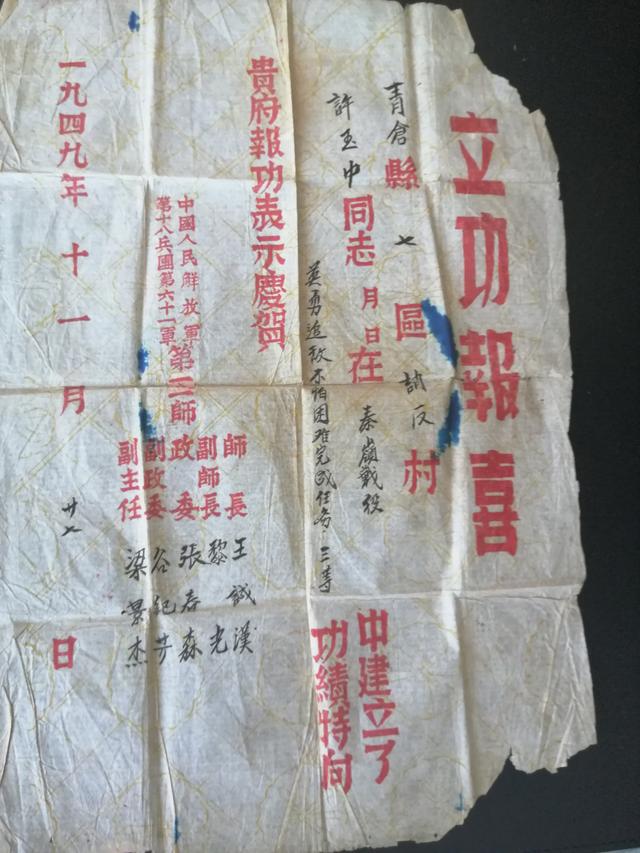 立功報喜
青倉縣七區
村
許玉中同志 月 日在秦嶺戰役
英勇追敌不怕困难完成任务·三等
中建立了
功績特向
貴府報功表示慶賀
中國人民解放軍
第十八兵團第六十一軍
第三師
師長 王誠漢
副師長 黎光
政委 張春森
副政委 谷紀芳
副主任 梁景杰
一九四九年十一月廿七日